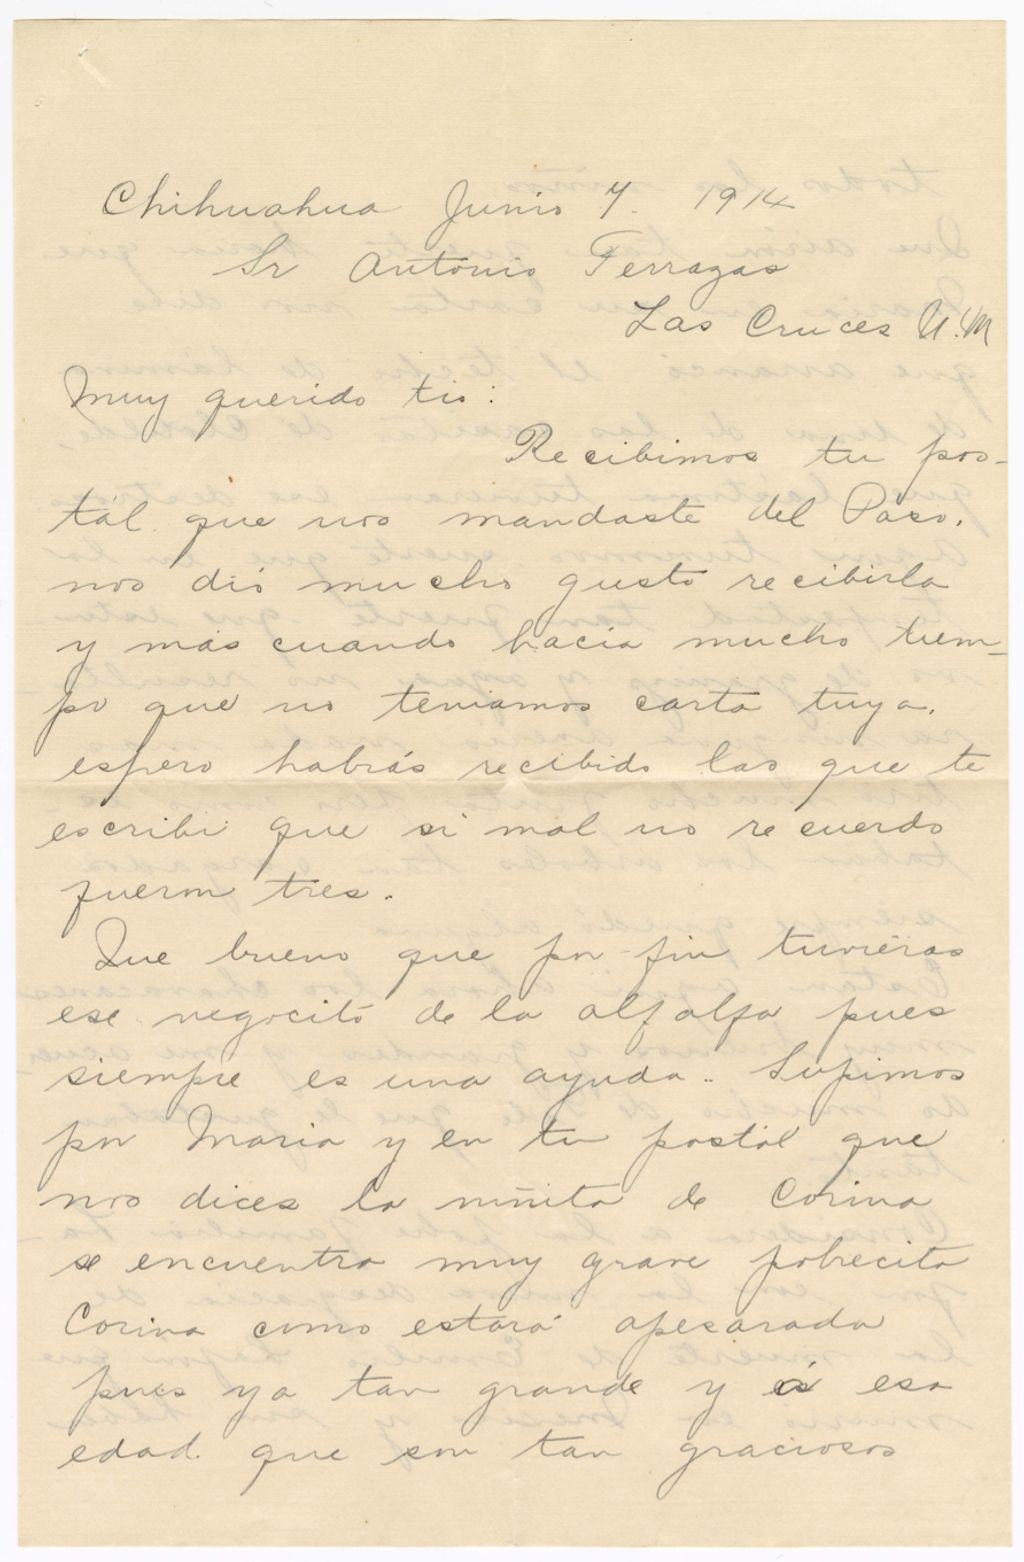 Chihuahua Junio 7. 1914
Sr Antonio Terrazas
Las Cruces N.M
Muy querido tio:
Recibimos tu pos-
tál que nos mandaste del Paso,
nos dió mucho gusto recibirla
y más cuando hacía mucho tiem-
po que no teniamos carta tuya,
espero habrás recibido las que te
escribi que si mal no recuerdo
fueron tres.
Que bueno que por fin tuvieras
ese negocito de la alfalfa pues
siempre es una ayuda.. Supimos
por Maria y en tu postál que
nos dices la niñita de Corina
se encuentra muy grave pobrecita
Corina como estará apesarada
pues ya tan grande y á esa
edad que son tan graciosos